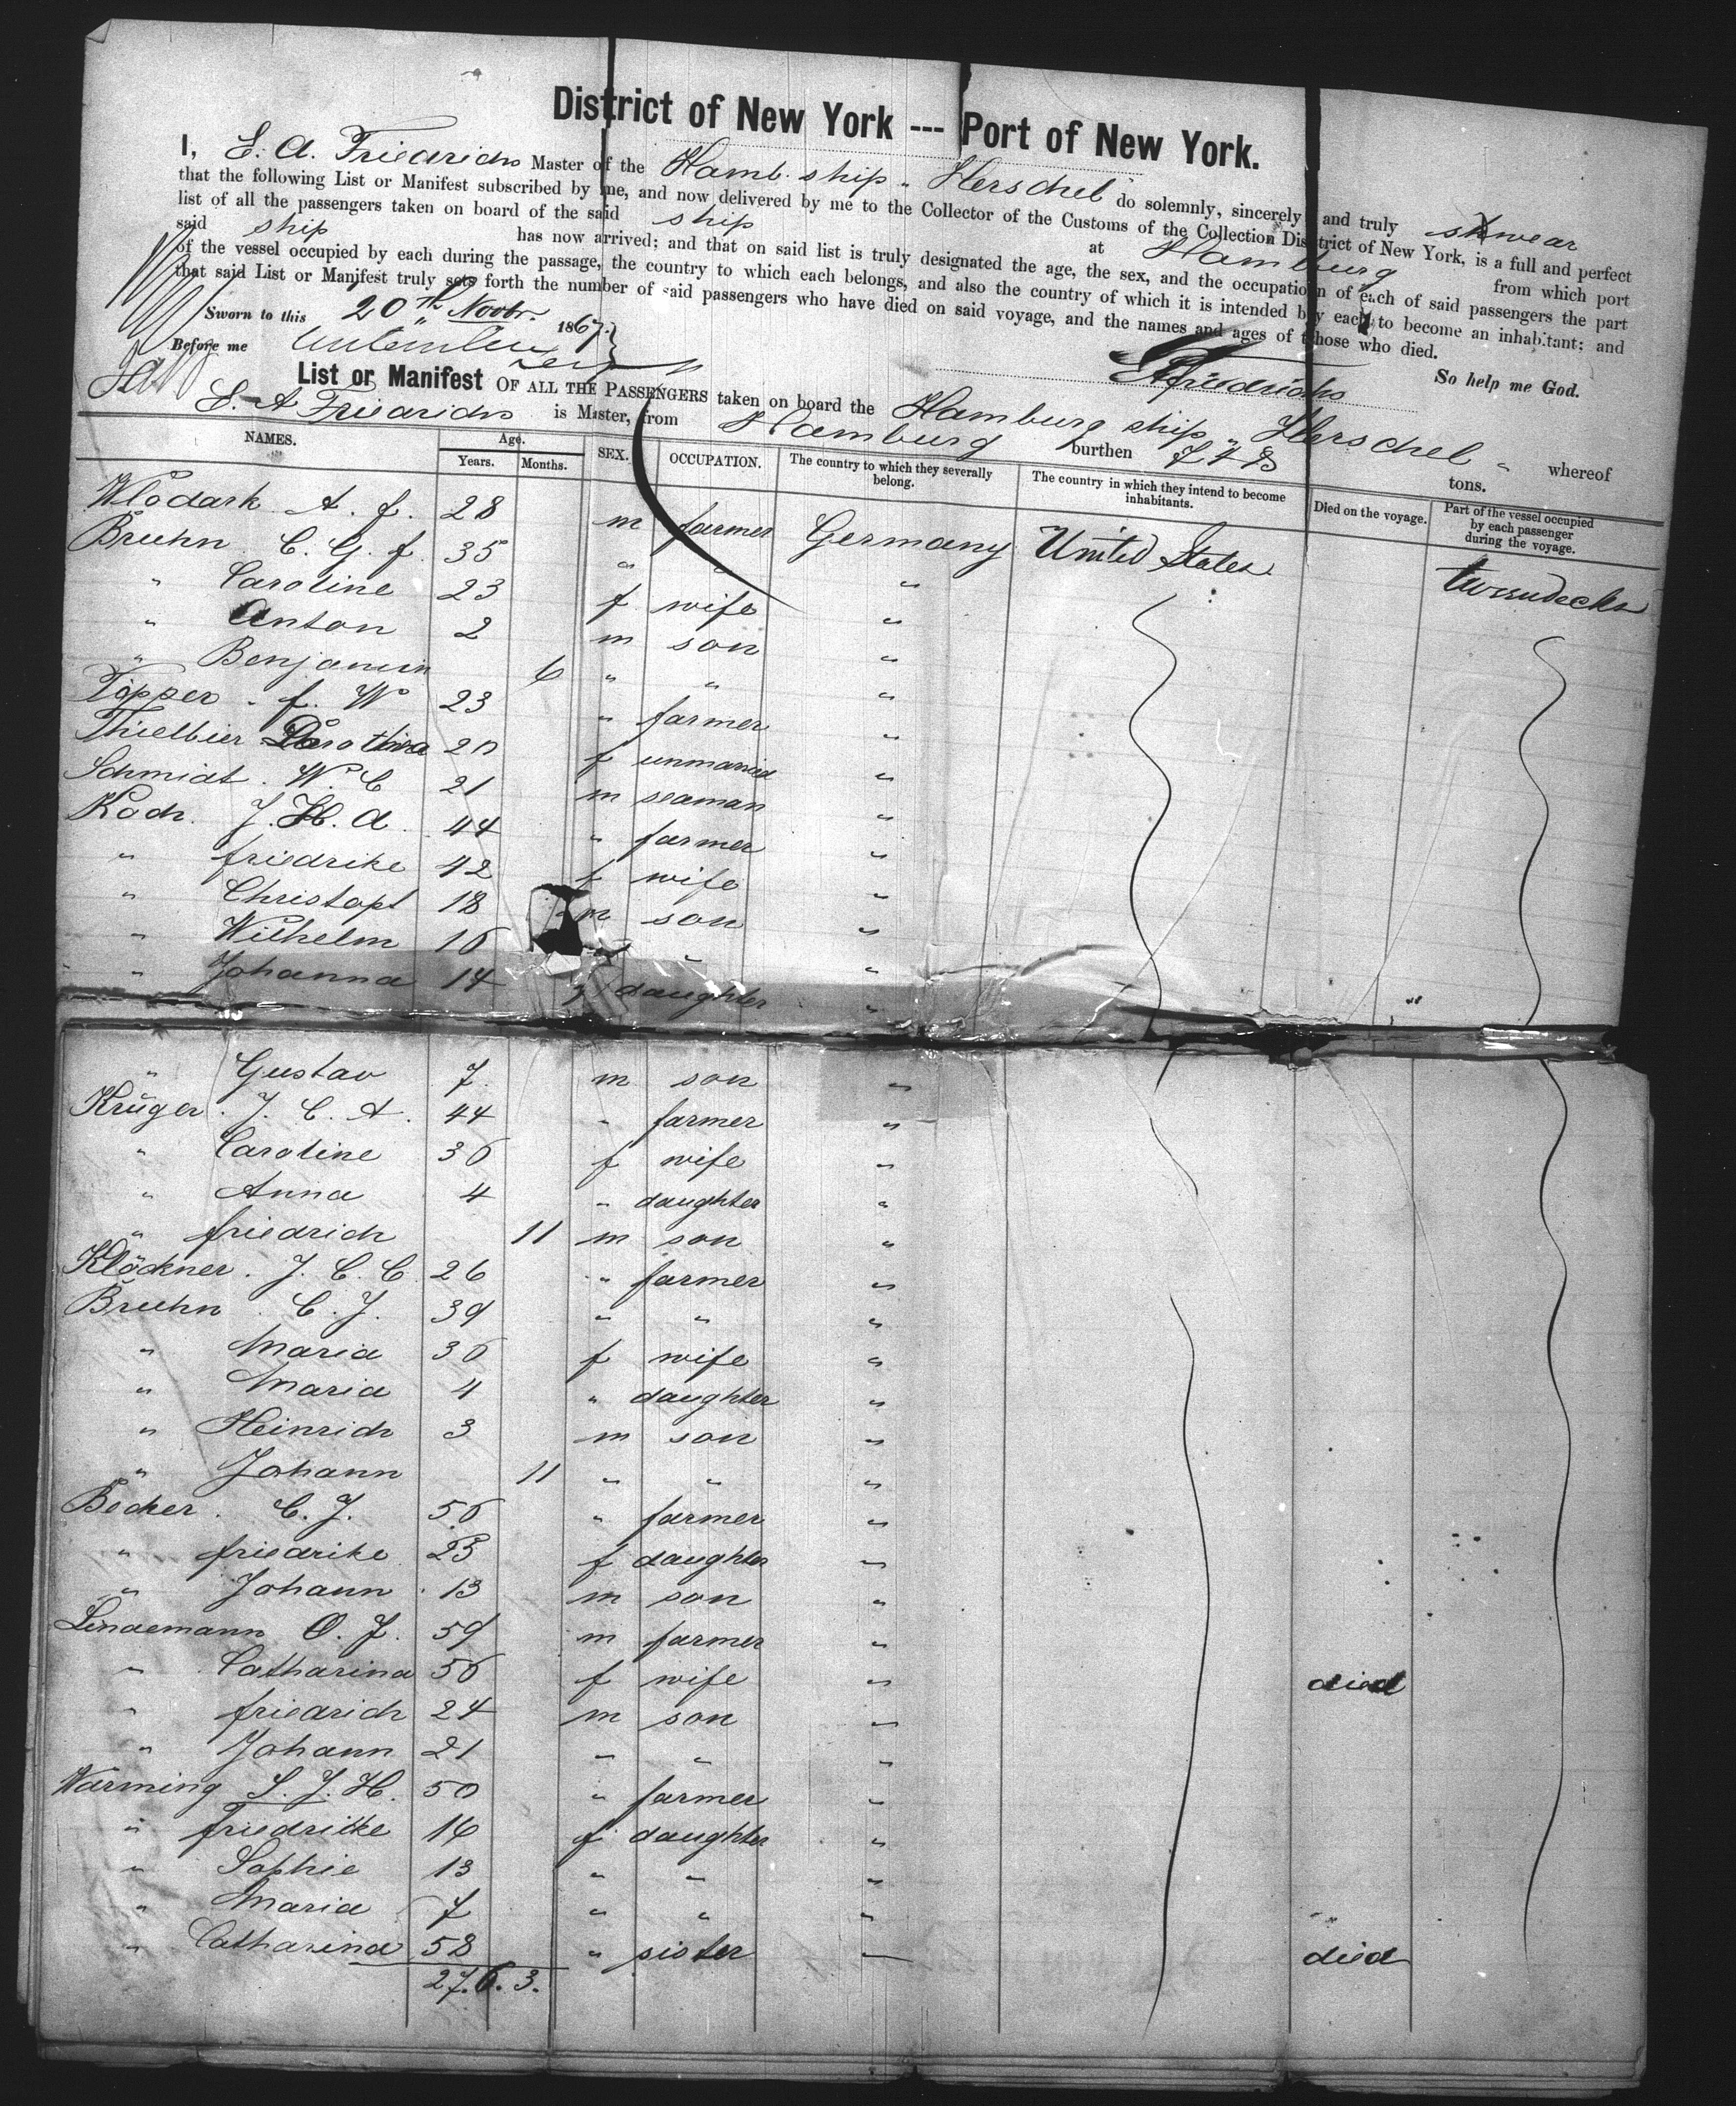 District of New York --- Port of New York.
I, E. A. Friedrichs Master of the Hamb. ship „ Herschel" do solemnly, sincerely and truly swear
that the following List or Manifest subscribed by me, and now delivered by me to the Collector of the Customs of the Collection District of New York, is a full and perfect
list of all the passengers taken on board of the said ship at Hamburg from which port
said ship has now arrived; and that on said list is truly designated the age, the sex, and the occupation of each of said passengers the part
of the vessel occupied by each during the passage, the country to which each belongs, and also the country of which it is intended by each to become an inhabitant; and
that said List or Manifest truly sets forth the number of said passengers who have died on said voyage, and the names and ages of those who died.
Sworn to this 20th Novbr. 1867. So help me God.
Before me
Friedrichs
List or Manifest OF ALL THE PASSENGERS taken on board the Hamburg ship „ Herschel " whereof
E. A Friedrichs is Master, from Hamburg burthen tons.
NAMES. Age. SEX. OCCUPATION. The country to which they severally belong. The country in which they intend to become inhabitants. Died on the voyage. Part of the vessel occupied by each passenger during the voyage.
Years. Months.
Wlodark A. f. 28 m farmer Germany United States twendecks
Bruhn C. G. f. 35 " " "
" Caroline 23 f wife "
" Anton 2 m son "
" Benjamin 6 " " "
Töpper . f. W 23 " farmer "
Thielbier Dorothea 20 f unmarried "
Schmidt . W. C 21 m seaman "
Koch. J. H. A. 44 " farmer "
" friedrike 42 f wife "
" Christopt 18 m son "
" Wilhelm 16 " "
" Johanna 14 f daughter "
" Gustav 7. m son "
Krüger . J. C. A. 44 " farmer "
" Caroline 36 f wife "
" Anna 4 " daughter "
" friedrich 11 m son "
Klöckner . J. C. C. 26 " farmer "
Bruhn . C. J. 39 " " "
" Maria 36 f wife "
" Maria 4 " daughter "
" Heinrich 3 m son "
" Johann 11 " " "
Becker . C. J. 56 " farmer "
" friedrike 23 f daughter "
" Johann 13 m son "
Lindemann O. J. 59 m farmer "
" Catharina 56 f wife " died
" friedrich 24 m son "
" Johann 21 " " "
Warming S. J. H. 50 " farmer "
" Friedrike 16 f daughter "
" Sophie 13 " " "
" Maria 7 " " "
" Catharina 58 " sister " died
27. 6. 3.